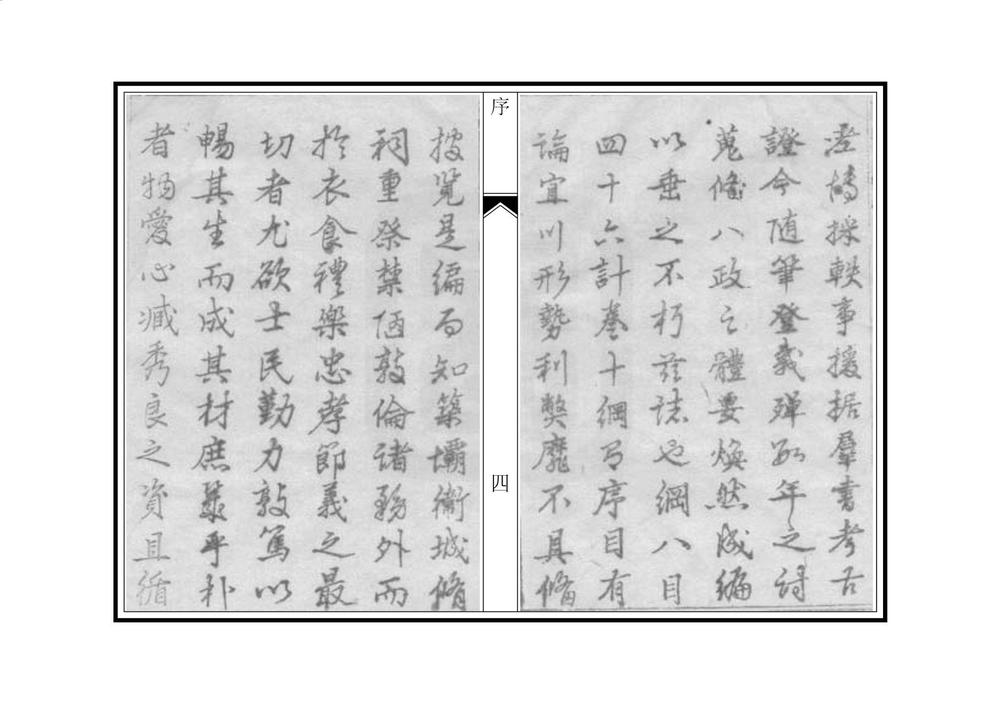 採軼事援据羣書考古
證今随筆登載殫數年之討
蒐備八政之體要煥然成編
以垂之不朽茲誌也綱八目
四十六計卷十綱有序目有
論宜川形勢利獘靡不具備
序
四
披覽是編而知築壩衞城脩
祠重祭禁陋敦倫諸務外而
於衣食禮樂忠孝節義之最
切者尤欲士民勤力敦篤以
暢其生而成其材庶幾乎朴
者物愛心臧秀良之資且循